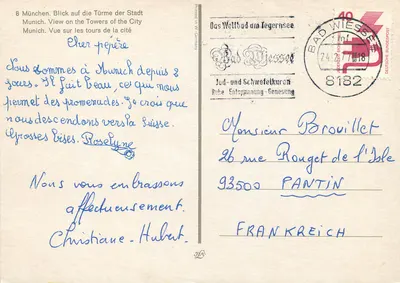 8 München. Blick auf die Türme der Stadt
Munich. View on the Towers of the City
Munich. Vue sur les tours de la cité
Cher pépère
Nous sommes à Munich depuis 2
jours. Il fait beau, ce qui nous
permet des promenades. Je crois que
nous descendons vers la Suisse.
Grosses bises. Roselyne
Nous vous embrassons
affectueusement.
Christiane - Hubert.
Das Weltbad am Tegernsee
Bad Wiessee
Jod- und Schwefelkuren
Ruhe · Entspannung · Genesung
BAD WIESSEE
8182
40
Monsieur Brouillet
26 rue Rouget de l'Isle
93500 PANTIN
FRANKREICH